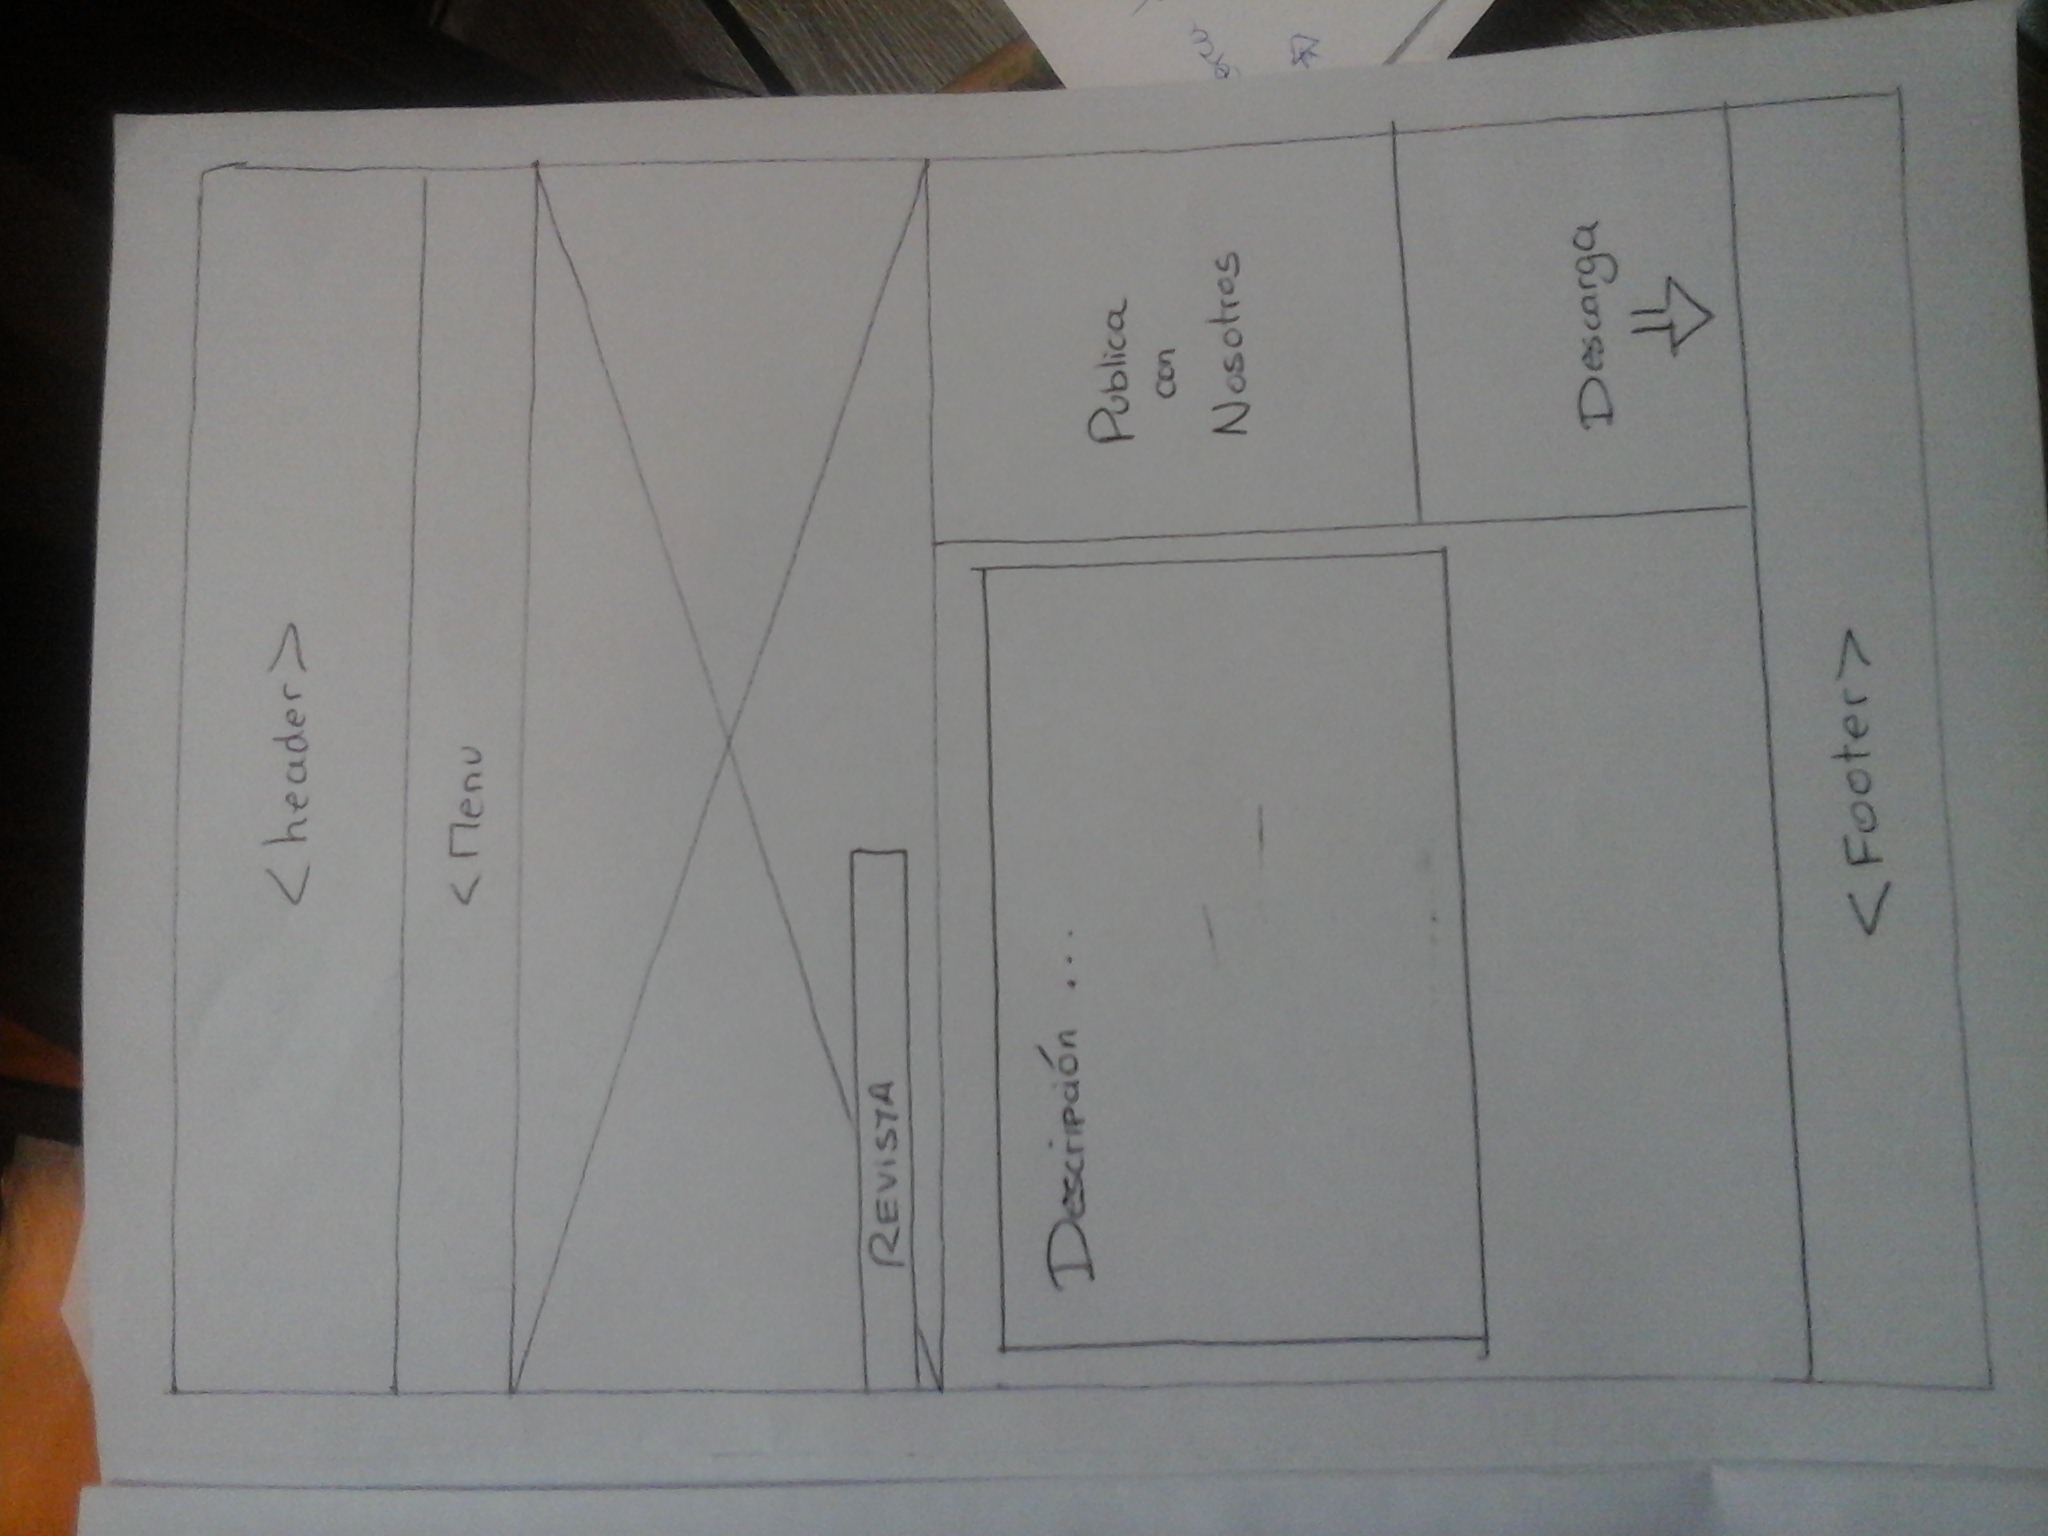 <header>
<Menu
REVISTA
Descripción ...
Publica
con
Nosotros
Descarga
<Footer>